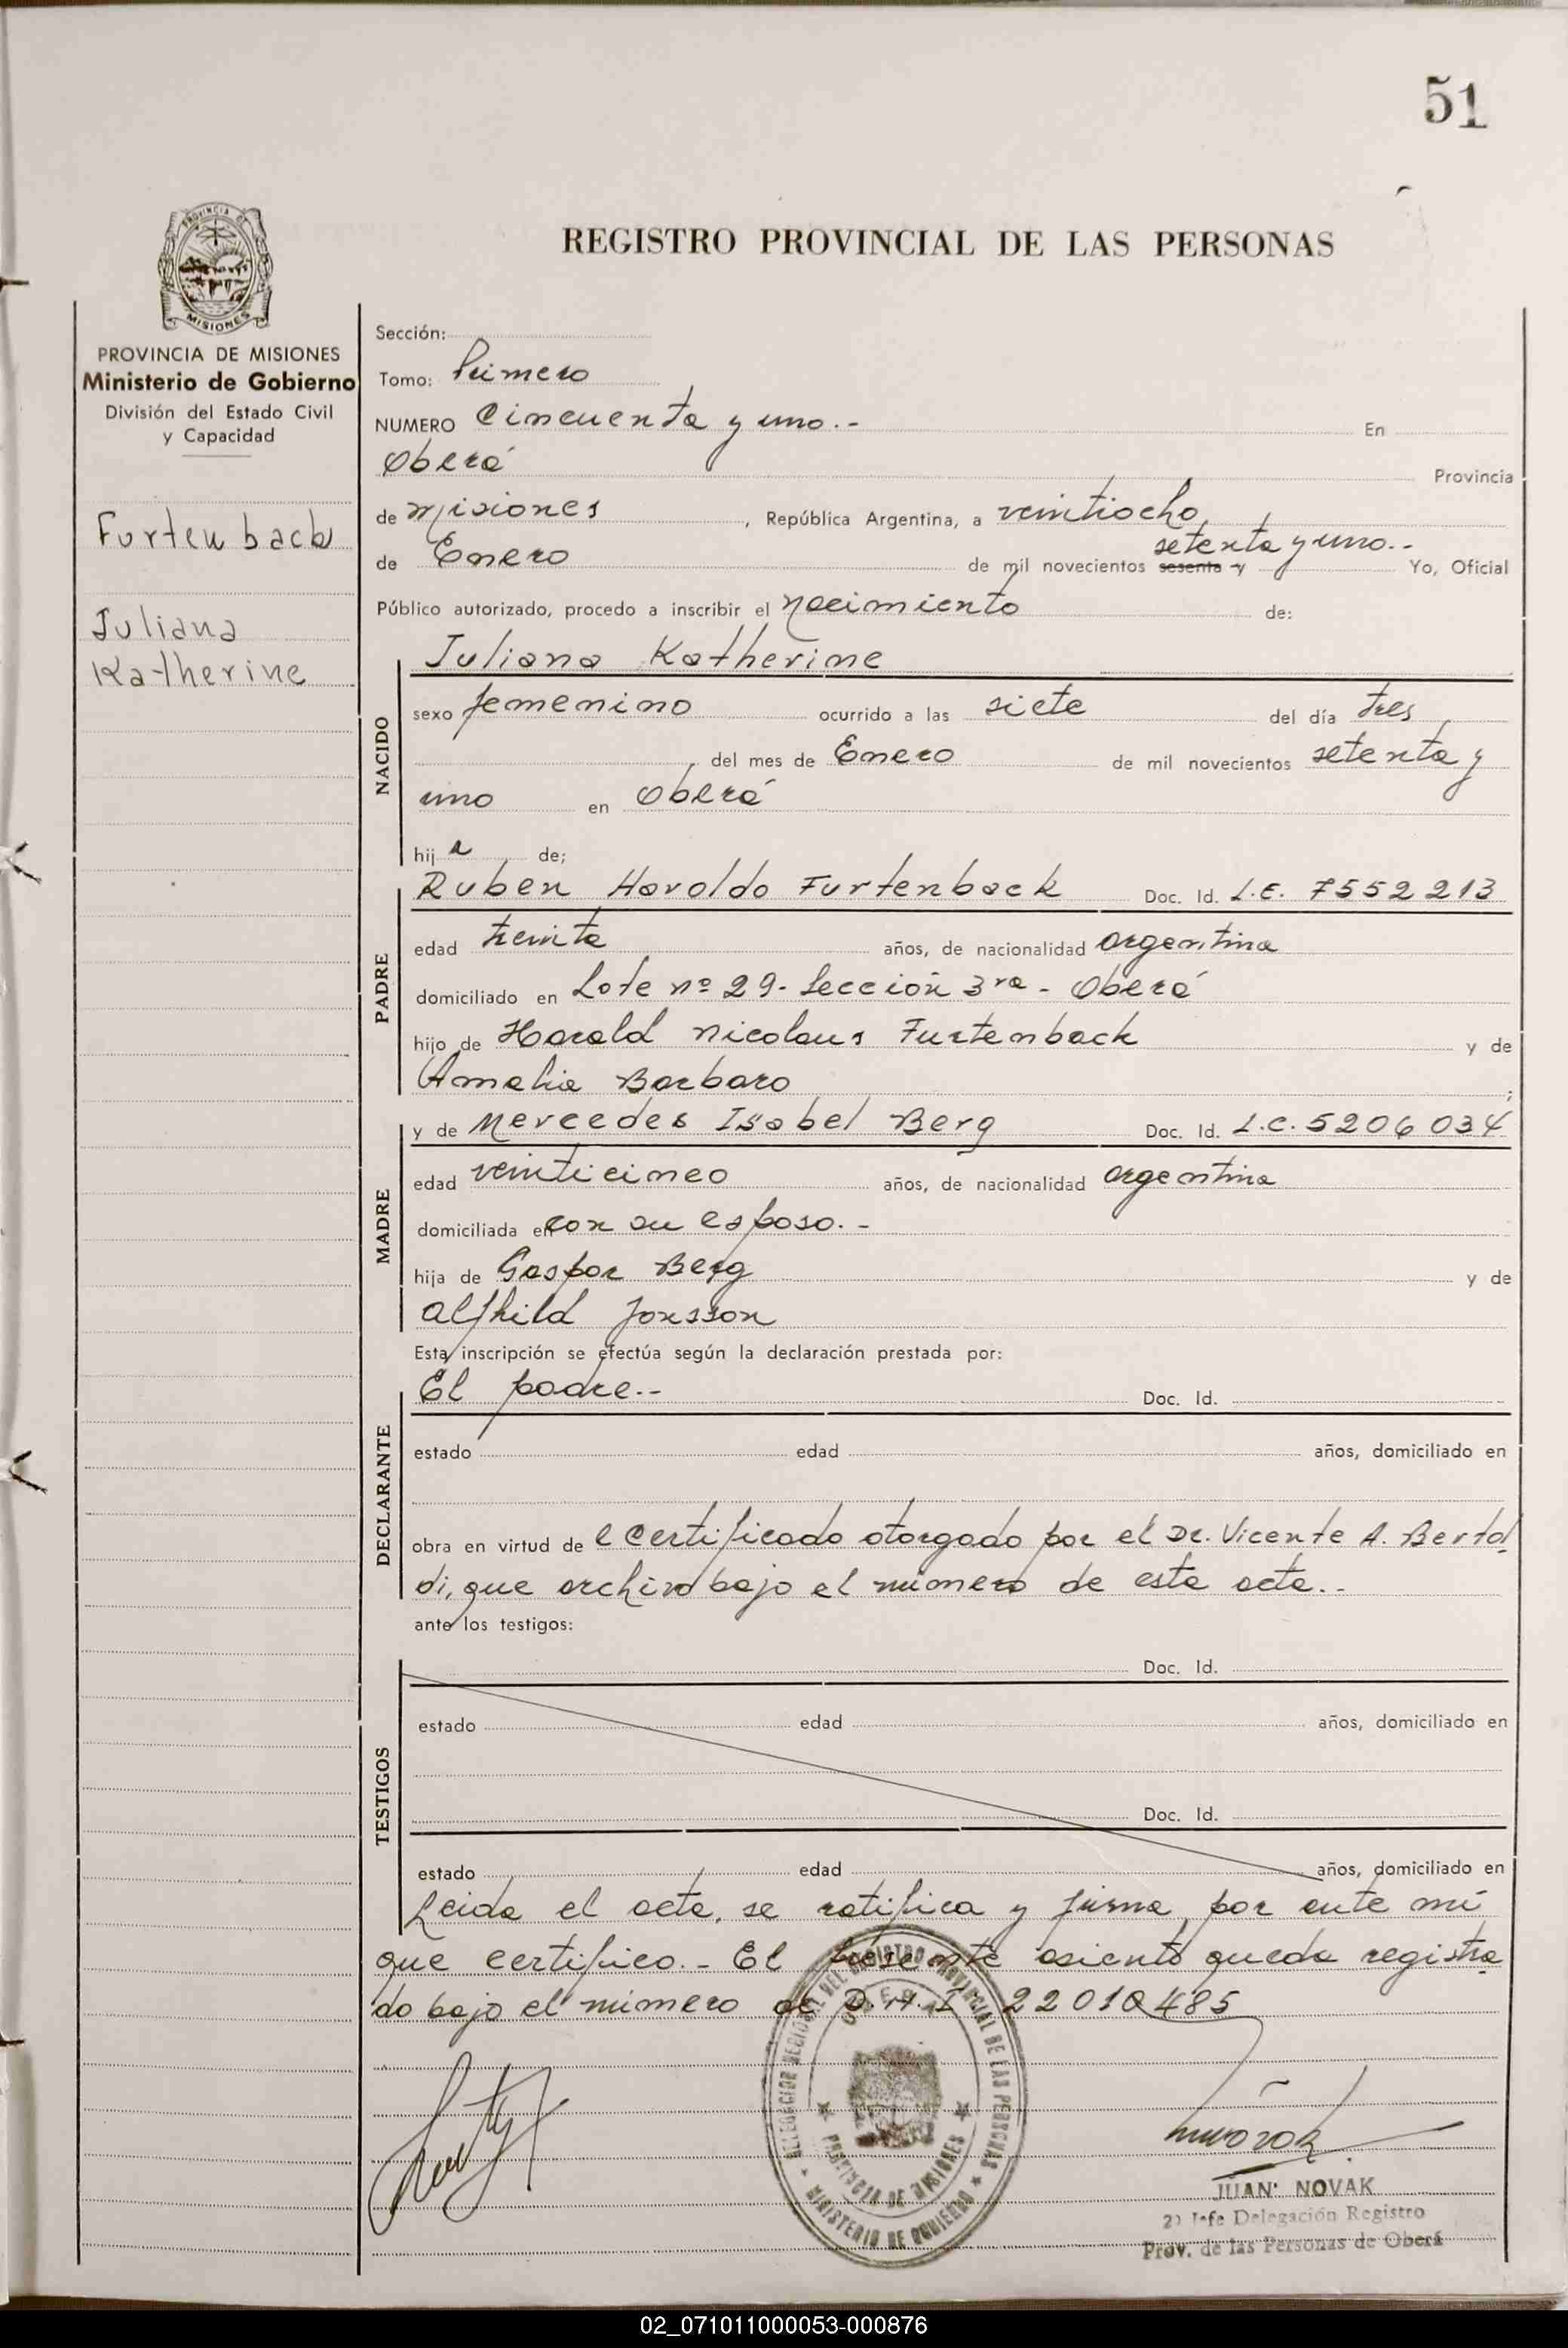 51
REGISTRO PROVINCIAL DE LAS PERSONAS
PROVINCIA DE
MISIONES
PROVINCIA DE MISIONES
Ministerio de Gobierno
División del Estado Civil
y Capacidad
Furtenback
Juliana
Katherine
Sección:
Tomo: Primero
NUMERO Cincuenta y uno.- En
Oberá Provincia
de Misiones, República Argentina, a veintiocho
setenta y uno.-
de Enero de mil novecientos sesenta y Yo, Oficial
Público autorizado, procedo a inscribir el Nacimiento de:
NACIDO
Juliana Katherine
sexo femenino ocurrido a las siete del día tres
del mes de Enero de mil novecientos setenta y
uno en Oberá
hij a de;
PADRE
Ruben Haroldo Furtenback Doc. Id. L.E. 7552213
edad treinta años, de nacionalidad argentina
domiciliado en Lote nº 29- Sección 3ra - Oberá
hijo de Harald Nicolaus Furtenback y de
Amalia Barbaro;
MADRE
y de Mercedes Isabel Berg Doc. Id. L.C. 5206034
edad veinticinco años, de nacionalidad argentina
domiciliada en con su esposo.-
hija de Gaspar Berg y de
Alfhild Jonsson
Esta inscripción se efectúa según la declaración prestada por:
DECLARANTE
El padre.-- Doc. Id.
estado edad años, domiciliado en
obra en virtud de l certificado otorgado por el Dr. Vicente A. Bertol
di, que archivo bajo el número de esta acta..-
ante los testigos:
TESTIGOS
Doc. Id.
estado edad años, domiciliado en
Doc. Id.
estado edad años, domiciliado en
Leída el acta, se ratifica y firma, por ante mí
que certifico.- El presente asiento queda registra
do bajo el número de D.N.I 22010485
DELEGACION REGIONAL DEL REGISTRO PROVINCIAL DE LAS PERSONAS
OBERA
PROVINCIA DE MISIONES
MINISTERIO DE GOBIERNO
JUAN NOVAK
2) Jefe Delegación Registro
Prov. de las Personas de Oberá
02_071011000053-000876